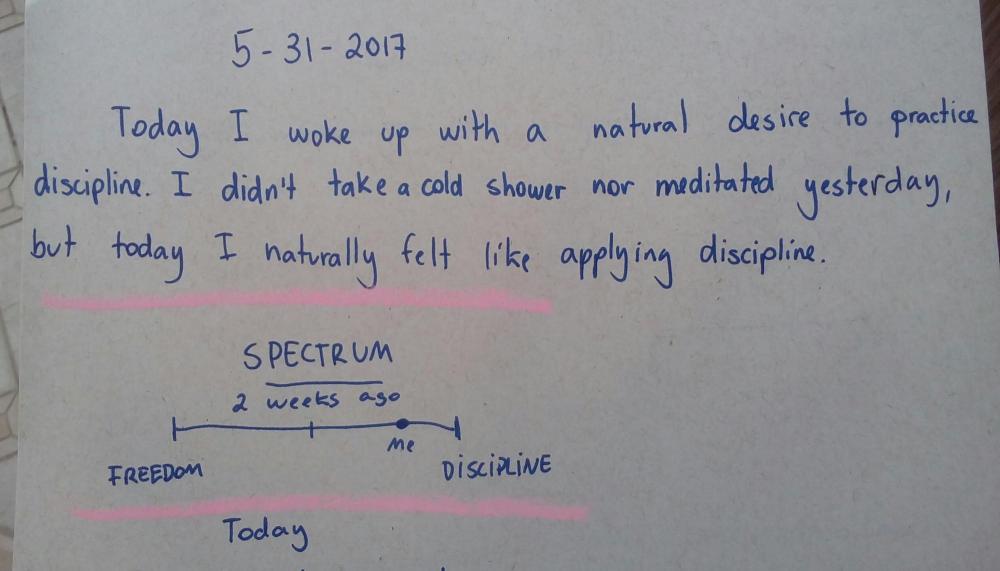 5-31-2017
Today I woke up with a natural desire to practice
discipline. I didn't take a cold shower nor meditated yesterday,
but today I naturally felt like applying discipline.
SPECTRUM
2 weeks ago
Me
FREEDOM DISCIPLINE
Today